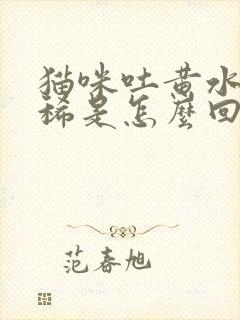 猫咪吐黄水
稀是怎麼回
范春旭